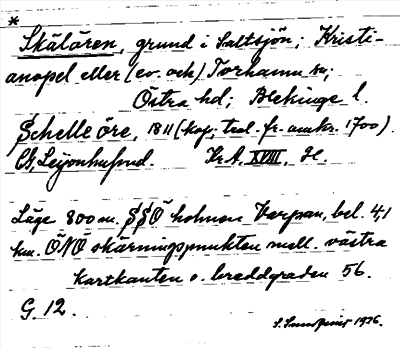 *
Skälören, grund i Saltsjön; Kristi-
anopel eller (ev. och) Torhamn sn;
Östra hd; Blekinge l.
Schelle öre, 1811 (kop; trol. fr. omkr. 1700).
G. Leijonhufvud. Kr. A. XVIII. H.
Läge 800 m. SSO holmen Verpan, bel. 4,1
km. ÖNÖ skärningspunkten mell. västra
kartkanten o. breddgraden 56.
G. 12.
S. Sundqvist 1926.